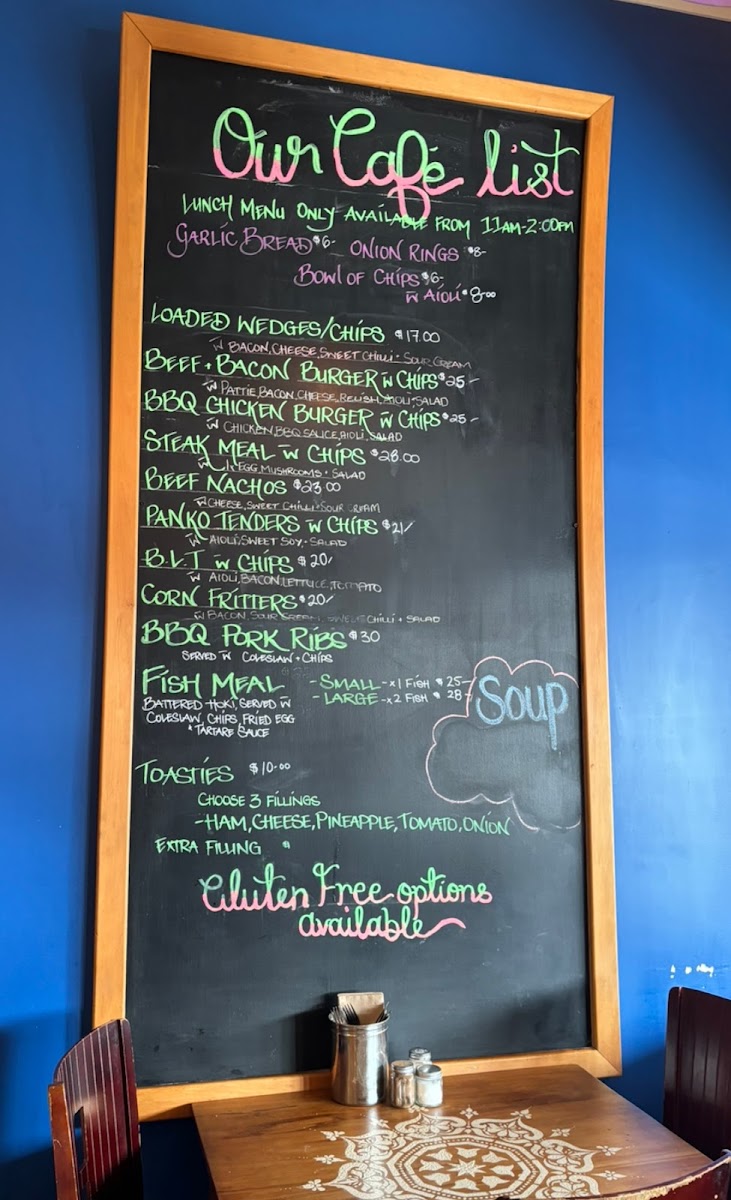 Our Café list
LUNCH MENU ONLY AVAILABLE FROM 11AM-2:00PM
GARLIC BREAD $6- ONION RINGS $8-
BOWL OF CHIPS $6-
w AIOLI $8-00
LOADED WEDGES/CHIPS $17.00
w BACON, CHEESE, SWEET CHILLI + SOUR CREAM
BEEF + BACON BURGER w CHIPS $25-
w PATTIE, BACON, CHEESE, RELISH, AIOLI, SALAD
BBQ CHICKEN BURGER w CHIPS $25-
w CHICKEN, BBQ SAUCE, AIOLI, SALAD
STEAK MEAL w CHIPS $28.00
w 1x EGG, MUSHROOMS + SALAD
BEEF NACHOS $23.00
w CHEESE, SWEET CHILLI + SOUR CREAM
PANKO TENDERS w CHIPS $21/
w AIOLI, SWEET SOY, + SALAD
B.L.T w CHIPS $20/
w AIOLI, BACON, LETTUCE, TOMATO
CORN FRITTERS $20/
w BACON, SOUR CREAM, SWEET CHILLI + SALAD
BBQ PORK RIBS $30
SERVED w COLESLAW + CHIPS
FISH MEAL -SMALL -x1 FISH $25-
-LARGE -x2 FISH $28-
BATTERED HOKI, SERVED w
COLESLAW, CHIPS, FRIED EGG
+ TARTARE SAUCE
Soup
TOASTIES $10-00
CHOOSE 3 FILLINGS
-HAM, CHEESE, PINEAPPLE, TOMATO, ONION
EXTRA FILLING
Gluten Free options
available